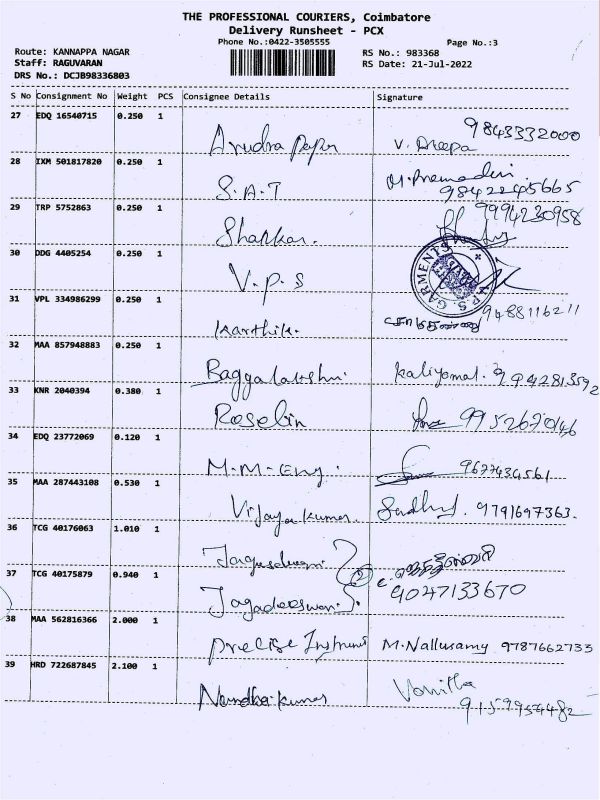 THE PROFESSIONAL COURIERS, Coimbatore
Delivery Runsheet - PCX
Phone No.:0422-3505555
Page No.:3
Route: KANNAPPA NAGAR
Staff: RAGUVARAN
DRS No.: DCJB98336803
RS No.: 983368
RS Date: 21-Jul-2022
S No Consignment No Weight PCS Consignee Details Signature
27 EDQ 16540715 0.250 1
Arudra Paper V. Deepa 9843332000
28 IXM 501817820 0.250 1
S.A.T M.Premadevi 9842245665
29 TRP 5752863 0.250 1
Shakkar. 9994230958
30 DDG 4405254 0.250 1
V.P.S
GARMENTS
31 VPL 334986299 0.250 1
Karthik. 9488116211
32 MAA 857948883 0.250 1
Baggalakshmi. Kaliyamal. 9942813592
33 KNR 2040394 0.380 1
Roselin 9952670146
34 EDQ 23772069 0.120 1
M.M-Eng. 9677434561
35 MAA 287443108 0.530 1
Vijayakumar. 9791697363.
36 TCG 40176063 1.010 1
37 TCG 40175879 0.940 1
Jagadeeswari. 2 9047133670
38 MAA 562816366 2.000 1
Precise Instrument M.Nallusamy 9787662733
39 HRD 722687845 2.100 1
Nandha kumar Vanitha